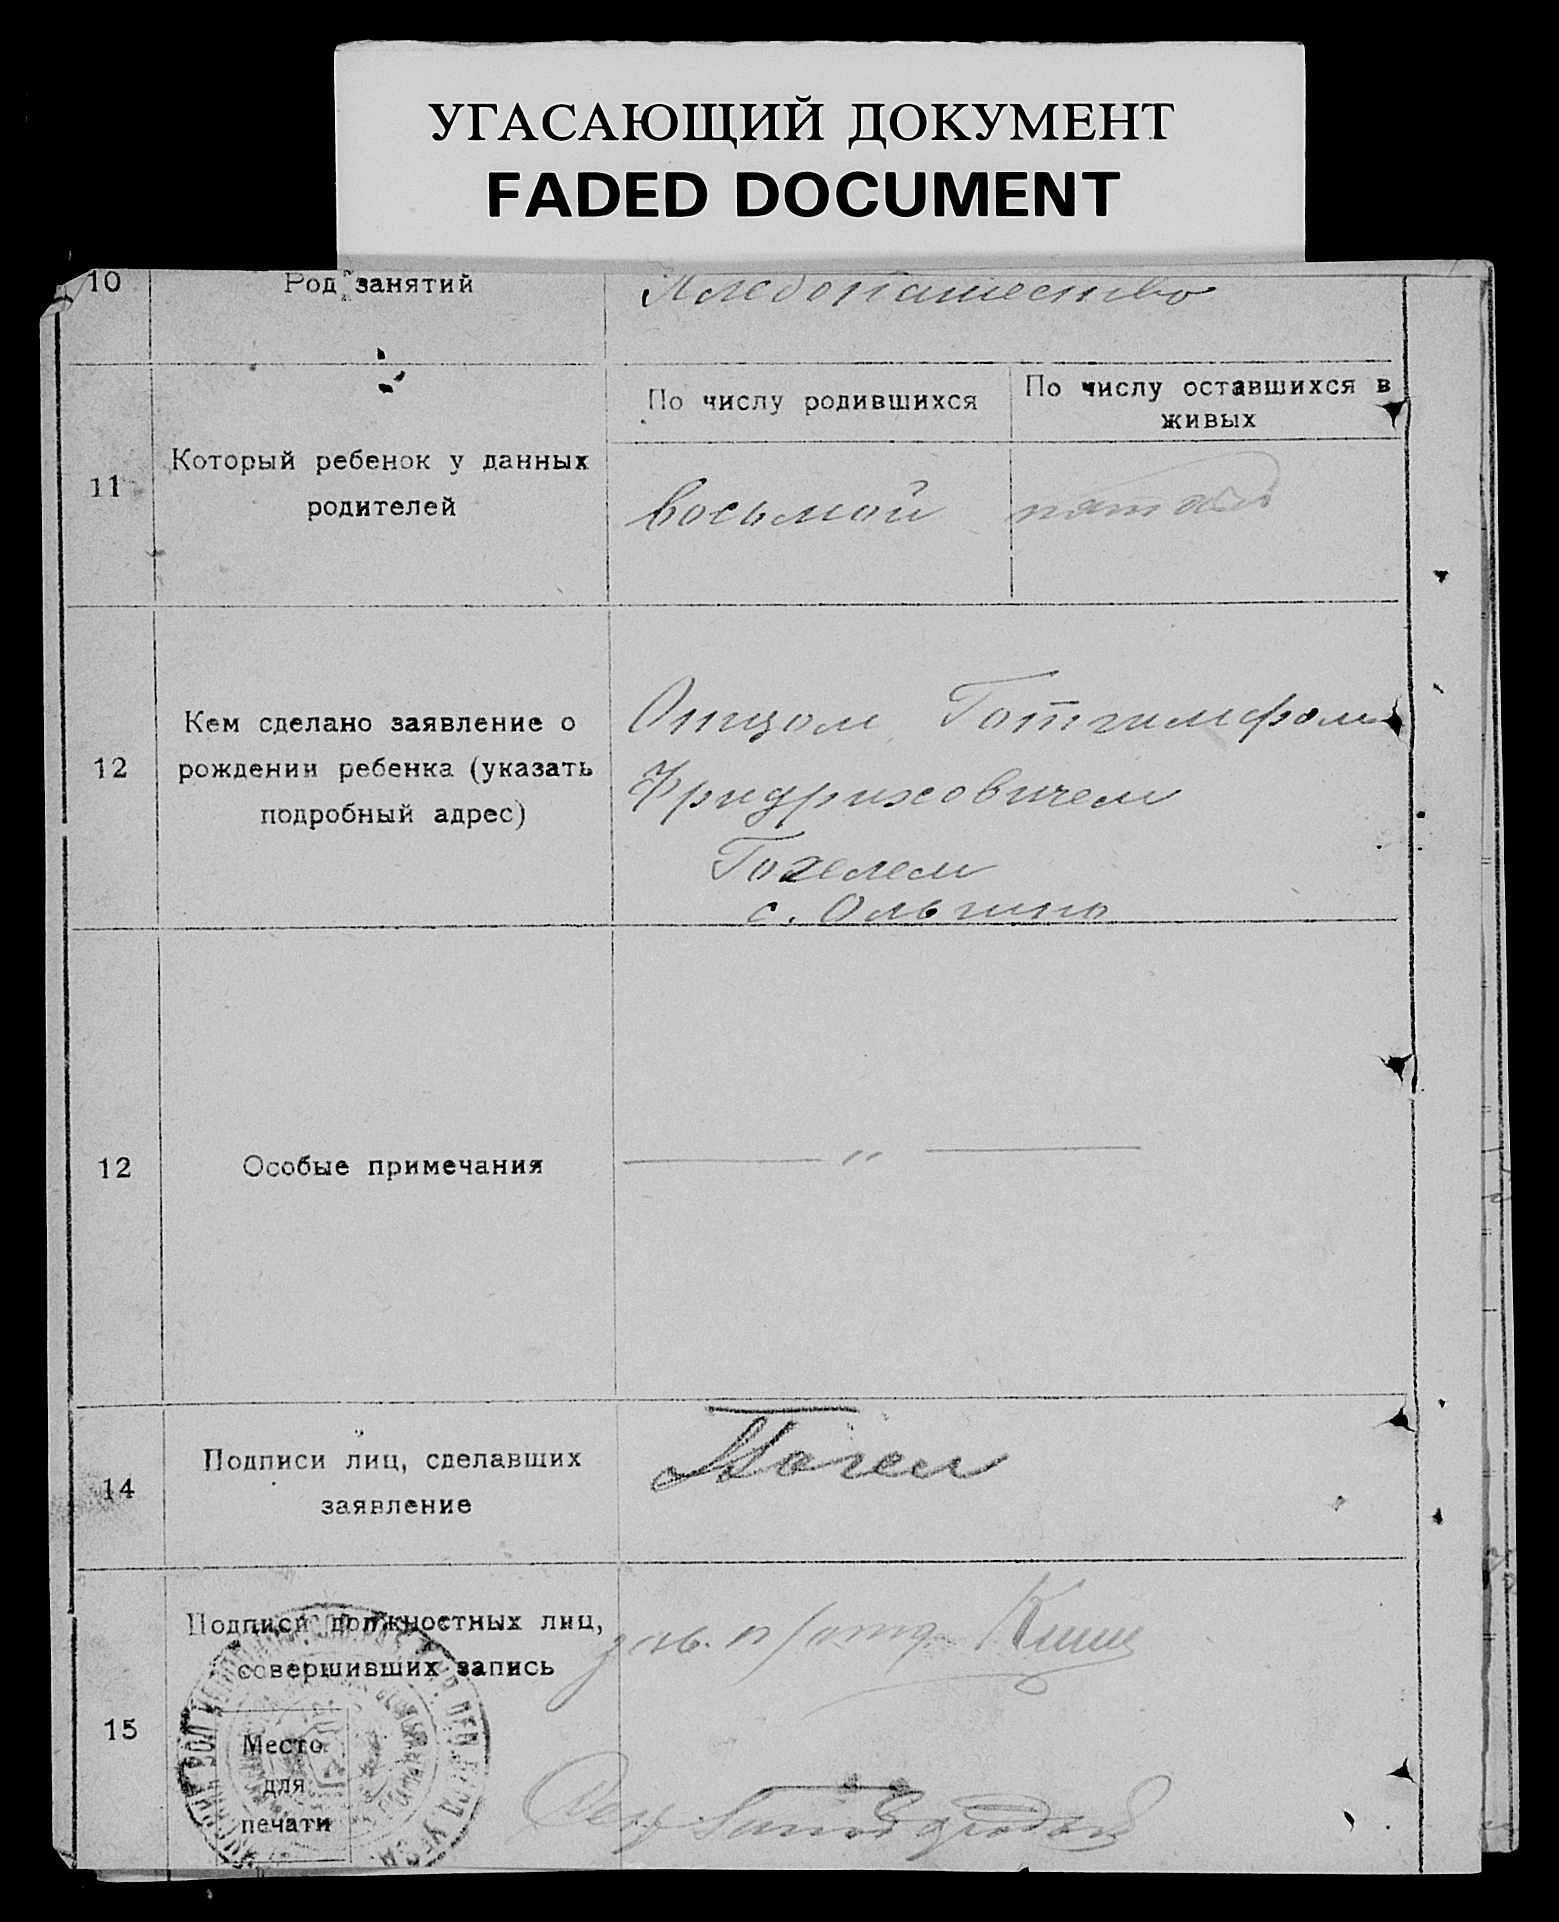 УГАСАЮЩИЙ ДОКУМЕНТ
FADED DOCUMENT
10 Род занятий Хлебопашество
11 Который ребенок у данных
родителей
По числу родившихся
По числу оставшихся в
живых
восьмой пятый
12 Кем сделано заявление о
рождении ребенка (указать
подробный адрес)
Отцом Готгилфом
Фридриховичем
Гохелем
с. Ольгино
12 Особые примечания — " —
14 Подписи лиц, сделавших
заявление
15 Подписи должностных лиц,
совершивших запись
Место
для
печати
зав. п/отд.